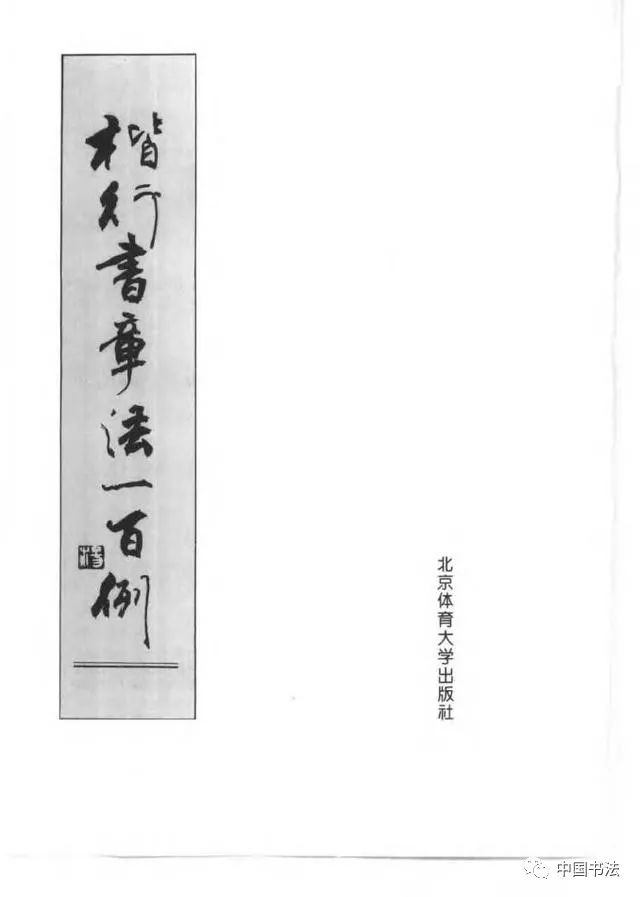 楷行书章法一百例
北京体育大学出版社
中国书法